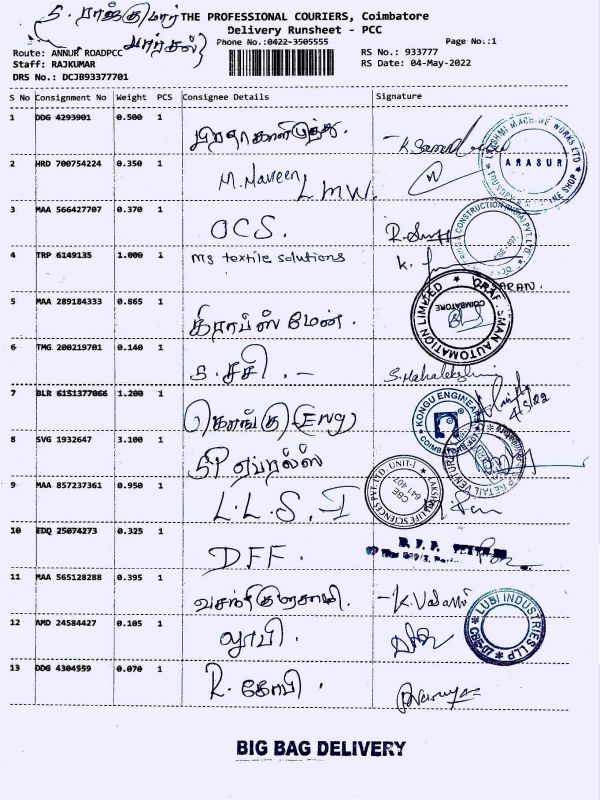 S. ராஜ்குமார் THE PROFESSIONAL COURIERS, Coimbatore
பார்சல் Delivery Runsheet - PCC
Phone No.:0422-3505555 Page No.:1
Route: ANNUR ROADPCC RS No.: 933777
Staff: RAJKUMAR RS Date: 04-May-2022
DRS No.: DCJB93377701
S No Consignment No Weight PCS Consignee Details Signature
1 DDG 4293901 0.500 1
LAKSHMI MACHINE WORKS LTD ARASUR FOUNDRY & MACHINE SHOP
2 HRD 700754224 0.350 1 M. Naveen LMW.
3 MAA 566427707 0.370 1 OCS.
4 TRP 6149135 1.000 1 ms textile solutions K.
SARAN.
5 MAA 289184333 0.865 1 கிராப்ஸ் மேன்.
CRAFTSMAN AUTOMATION LIMITED COIMBATORE
6 TMG 200219701 0.140 1 S. சசி. - S. Mahalakshmi
7 BLR 6151377066 1.200 1 கொங்கு (Eng)
KONGU ENGINEER 4/5/22
8 SVG 1932647 3.100 1 SP ஏப்ரல்ஸ்
9 MAA 857237361 0.950 1 L.L.S. - I
LAKSHMI LIFE SCIENCES PVT. LTD. UNIT-I CBE 641 407
10 EDQ 25074273 0.325 1 DFF.
11 MAA 565128288 0.395 1 வசந்த் குமாரசாமி.
12 AMD 24584427 0.105 1 லூபி.
LUBI INDUSTRIES LLP CBE-07
13 DDG 4304559 0.070 1 R. கோபி.
BIG BAG DELIVERY